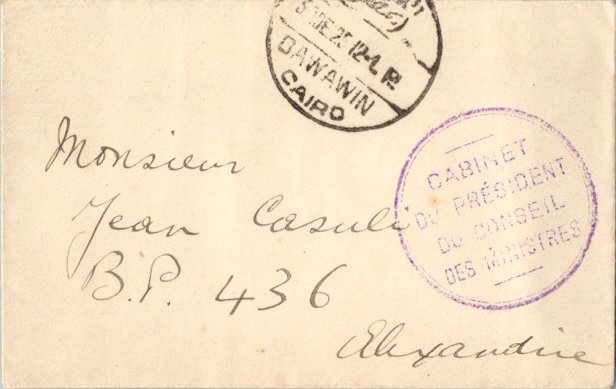 DAWAWIN
CAIRO
CABINET
DU PRÉSIDENT
DU CONSEIL
DES MINISTRES
Monsieur
Jean Casulli
B.P. 436
Alexandrie